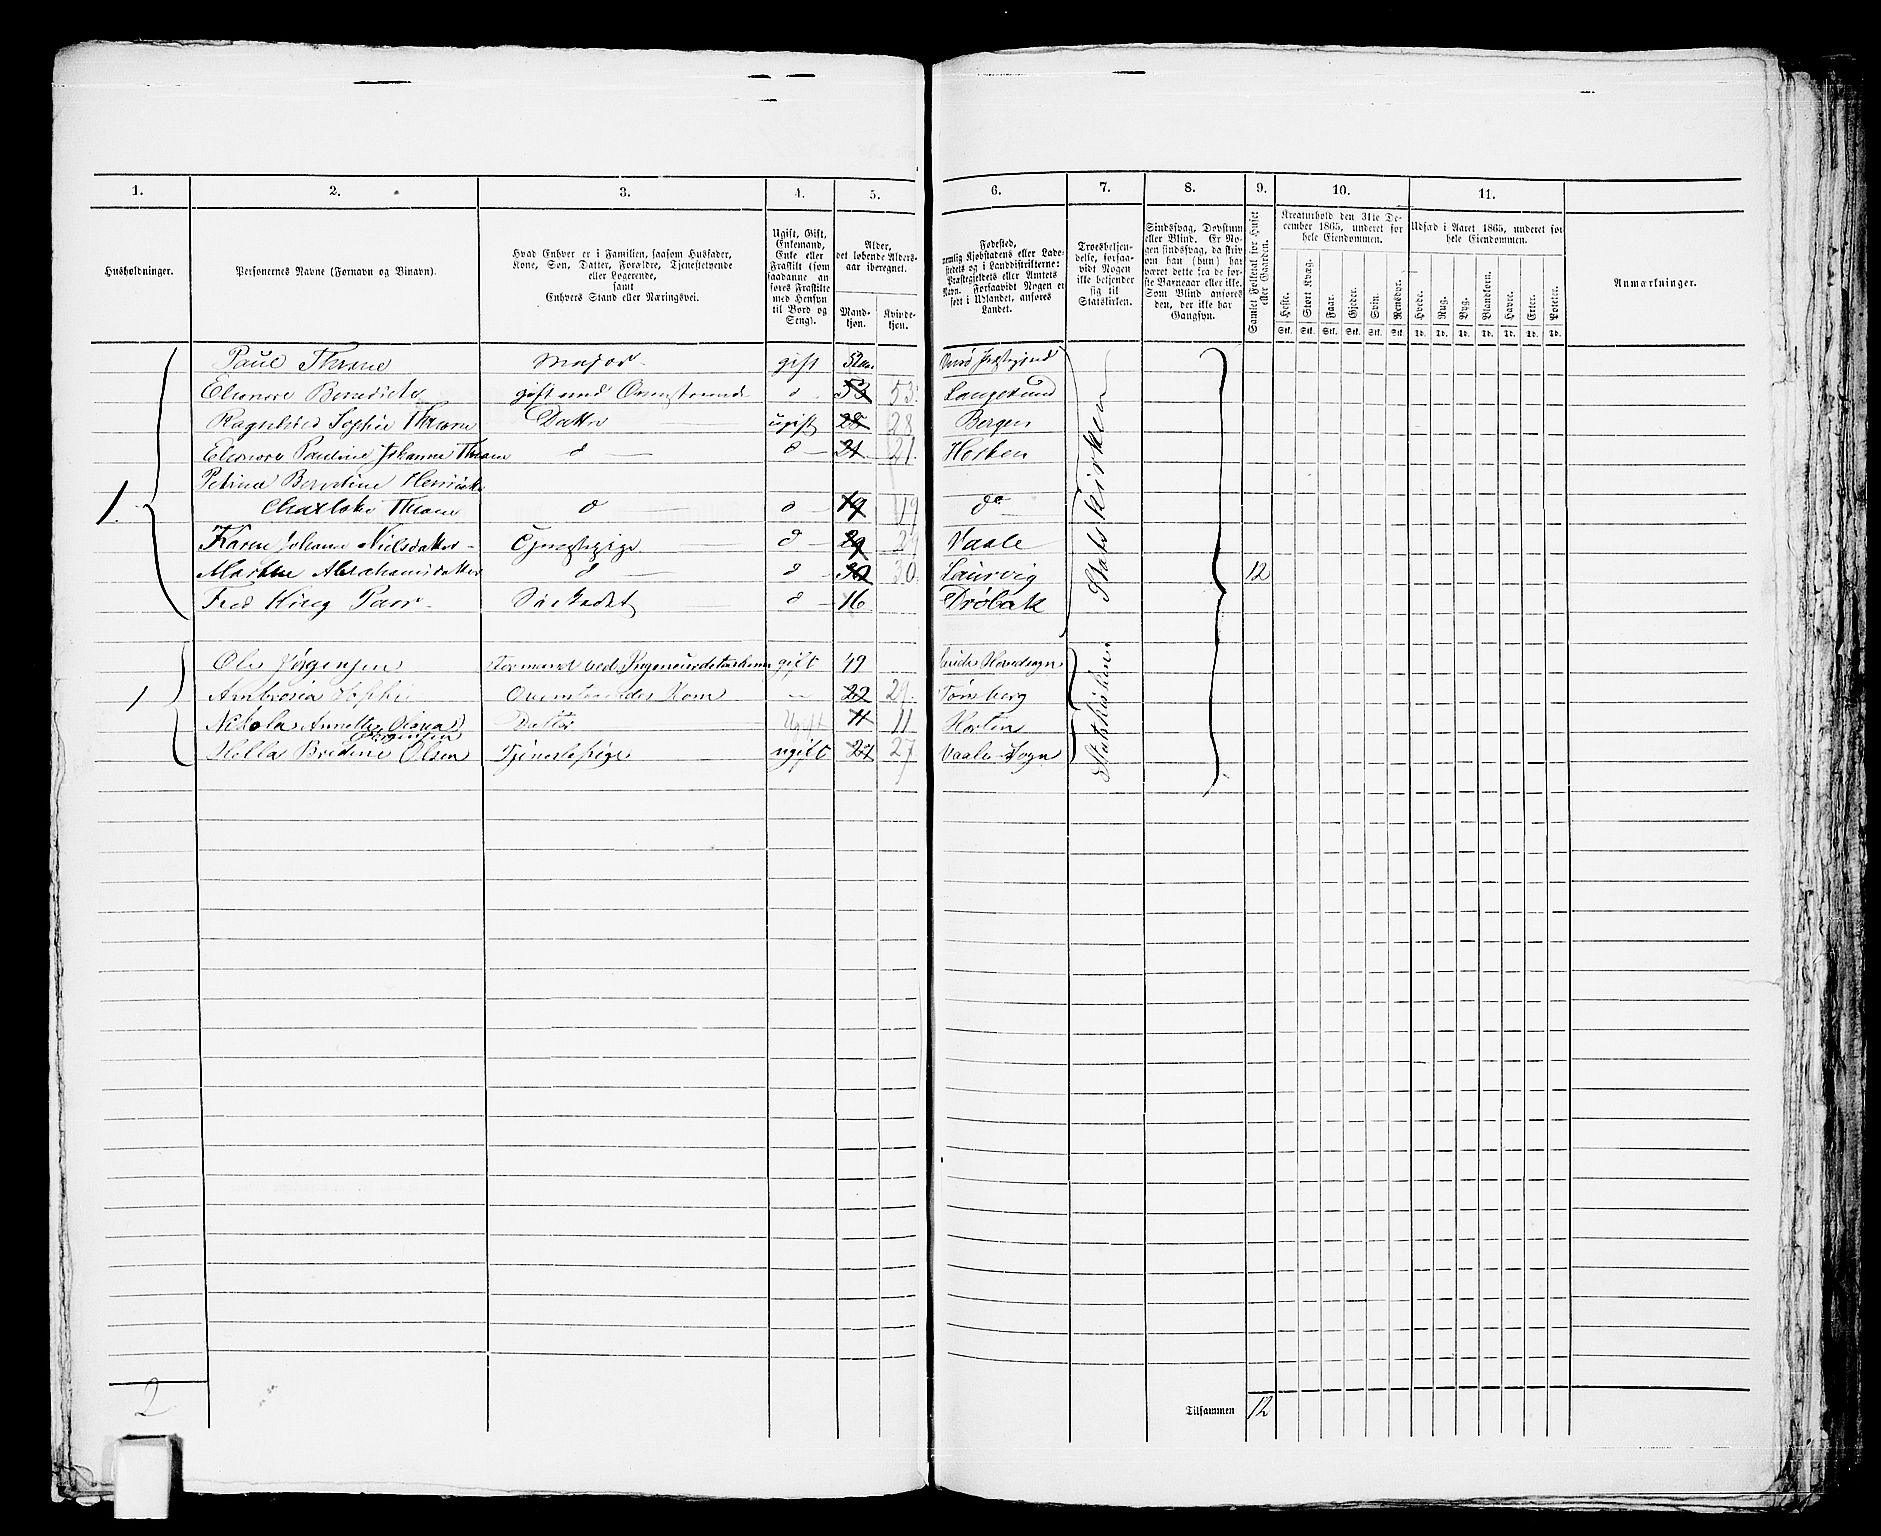 1. 2. 3. 4. 5. 6. 7. 8. 9. 10. 11.
Husholdninger.
Personernes Navne (Fornavn og Binavn).
Hvad Enhver er i Familien, saasom Husfader,
Kone, Søn, Datter, Forældre, Tjenestetyende
eller Logerende,
samt
Enhvers Stand eller Næringsvei.
Ugift, Gift,
Enkemand,
Enke eller
Fraskilt (som
saadanne an-
føres Fraskilte
med Hensyn
til Bord og
Seng).
Alder,
det løbende Alders-
aar iberegnet.
Mand-
kjøn.
Kvinde-
kjøn.
Fødested,
nemlig Kjøbstadens eller Lade-
stedets og i Landdistrikterne:
Præstegjeldets eller Amtets
Navn. Forsaavidt Nogen er
født i Udlandet, anføres
Landet.
Troesbekjen-
delse, forsaa-
vidt Nogen
ikke bekjender
sig til
Statskirken.
Sindssvag, Døvstum
eller Blind. Er No-
gen sindssvag, da skriv
om han (hun) har
været dette fra de før-
ste Barneaar eller ikke.
Som Blind anføres
den, der ikke har
Gangsyn.
Samlet Folketal for Huset
eller Gaarden.
Kreaturhold den 31te De-
cember 1865, underet for
hele Eiendommen.
Heste. Stort Kvæg. Faar. Gjeder. Svin. Rensdyr.
Stk. Stk. Stk. Stk. Stk. Stk.
Udsæd i Aaret 1865, underet for
hele Eiendommen.
Hvede. Rug. Byg. Blandkorn. Havre. Erter. Poteter.
Td. Td. Td. Td. Td. Td. Td.
Anmærkninger.
Paul Thrane Major gift 52
Eleonore Benedicte gift med Ovenstaaende d 53 53 Langesund
1. Ragnhild Sophie Thrane Datter ugift 28 28 Bergen
Eleonore Pauline Johanne Thrane d d 21 21 Horten
Petrine Berntine Henriette
Charlotte Thrane d d 19 19 do
Karen Johanne Nielsdatter Tjenestepige d 29 29 Vaale
Marthe Abrahamsdatter d d 30 30 Laurvig 12
Fred King Parr Søkadet d 16 Drøbak
Statskirken
Ole Jørgensen Formand ved gift 49
1 Ambrosia Sophie Ovenstaaendes Kone 29 Tønsberg
Nikola Annette Olava
Jørgensen Datter Ugift 11 11 Horten
Hella Bredine Olsen Tjenestepige ugift 27 27 Vaale Sogn
Statskirken
2
Tilsammen 12